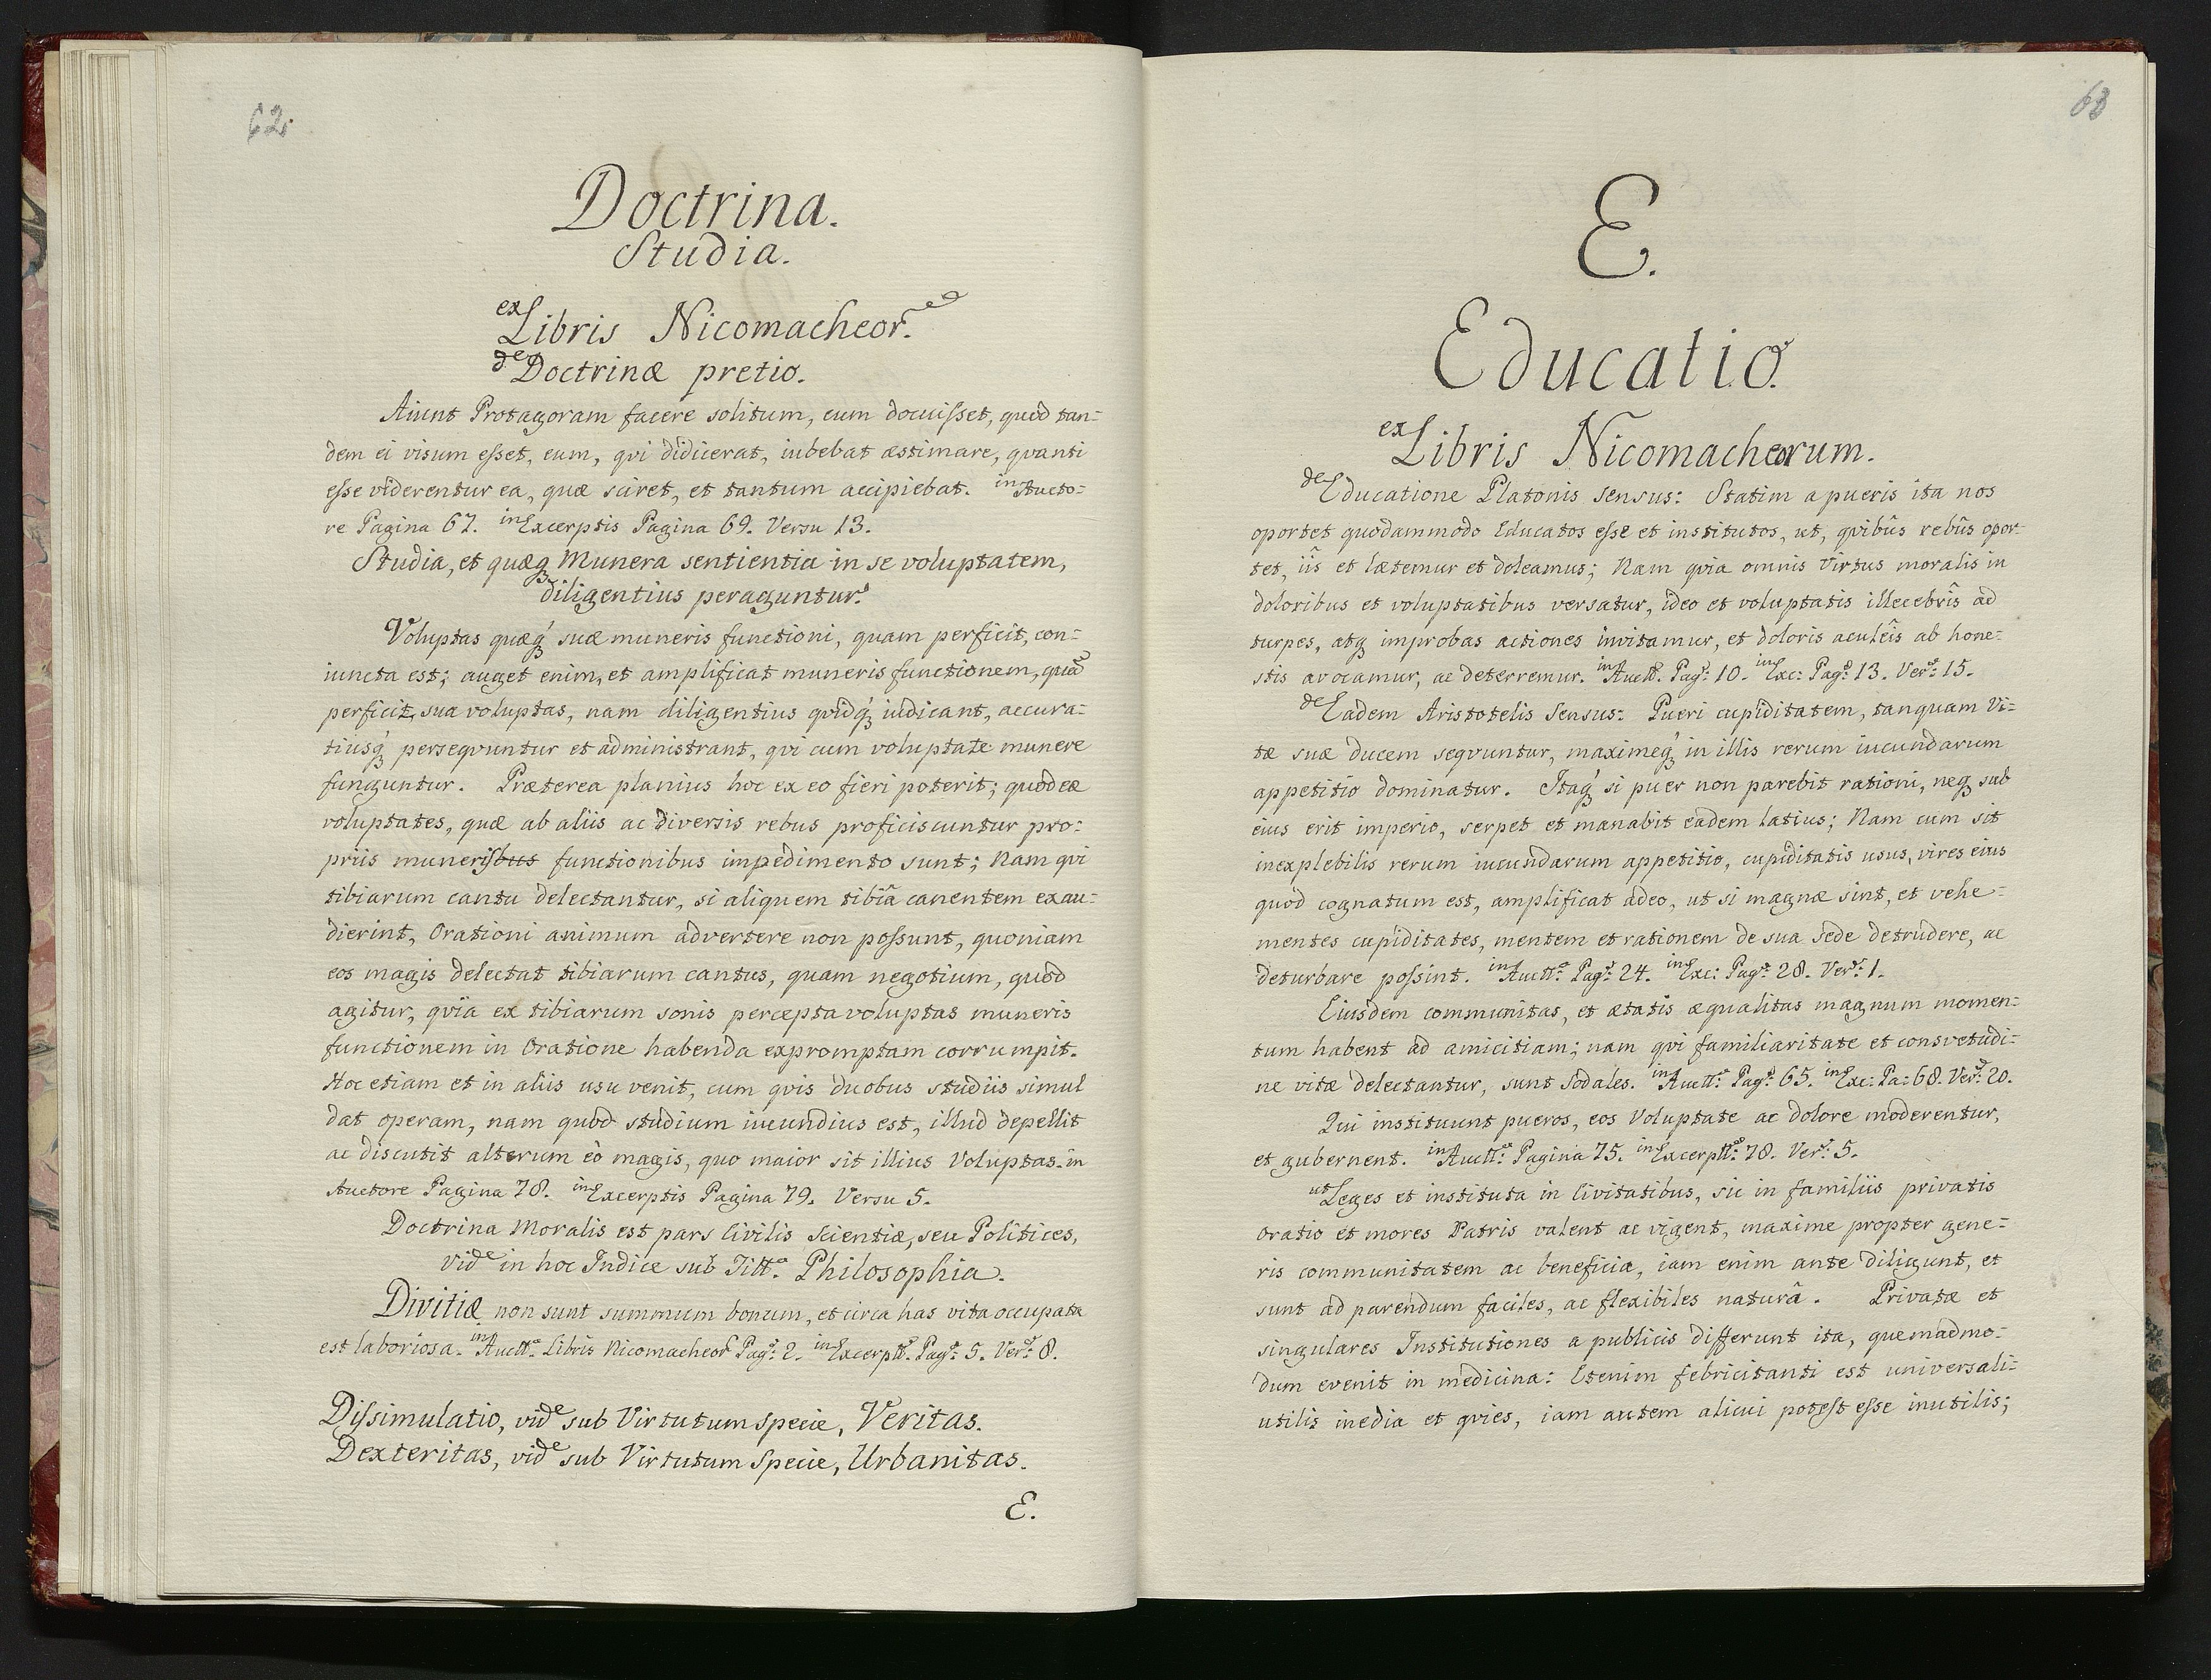 62.
Doctrina.
Studia.
ex Libris Nicomacheor.
de Doctrinæ pretio.
Aiunt Protagoram facere solitum, cum docuisset, quod tan=
dem ei visum esset, eum, qvi didicerat, iubebat æstimare, qvanti
esse viderentur ea, quæ sciret, et tantum accipiebat. in Aucto=
re Pagina 67. in Excerptis Pagina 69. Versu 13.
Studia, et quæq Munera sentientia in se voluptatem,
diligentius peraguntur.
Voluptas quæq́ suæ muneris functioni, quam perficit, con=
iuncta est; auget enim, et amplificat muneris functionem, quā
perficit, sua voluptas, nam diligentius qvidq́ iudicant, accura=
tiusq́ perseqvuntur et administrant, qvi cum voluptate munere
funguntur. Præterea planius hoc ex eo fieri poterit; quod eæ
voluptates, quæ ab aliis ac diversis rebus proficiscuntur pro=
priis muneris̶b̶u̶s̶ functionibus impedimento sunt; Nam qvi
tibiarum cantu delectantur, si aliquem tibiâ canentem exau=
dierint, Orationi animum advertere non possunt, quoniam
eos magis delectat tibiarum cantus, quam negotium, quod
agitur, qvia ex tibiarum sonis percepta voluptas muneris
functionem in Oratione habenda expromptam corrumpit.
Hoc etiam et in aliis usu venit, cum qvis duobus studiis simul
dat operam, nam quod studium iucundius est, illud depellit
ac discutit alterum eò magis, quo maior sit illius Voluptas. in
Auctore Pagina 78. in Excerptis Pagina 79. Versu 5.
Doctrina Moralis est pars Civilis Scientiæ, seu Politices,
vide in hoc Indice sub Titt.º Philosophia.
Divitiæ non sunt summum bonum, et circa has vita occupata
est laboriosa. in Auctt.ª Libris Nicomacheor. Pag.ª 2. in Excerptt. Pag.ª 5. Ver.ª 8.
Dissimulatio, vide sub Virtutum specie, Veritas.
Dexteritas, vide sub Virtutum Specie, Urbanitas.
E.
63
E.
Educatio.
ex Libris Nicomacheorum.
de Educatione Platonis sensus: Statim a pueris ita nos
oportet quodammodo Educatos esse et institutos, ut, qvibûs rebûs opor-
tet, iîs et lætemur et doleamus; Nam qvia omnis Virtus moralis in
doloribus et voluptatibus versatur, ideo et voluptatis illecebrîs ad
turpes, atq improbas actiones invitamur, et doloris aculeîs ab hone=
stis avocamur, ac deterremur. in Auctt. Pag.ª 10. in Exc: Pag.ª 13. Ver.ª 15.
de Eadem Aristotelis Sensus: Pueri cupiditatem, tanquam Vi=
tæ suæ ducem seqvuntur, maximeq́ in illis rerum iucundarum
appetitio dominatur. Itaq́ si puer non parebit rationi, neq sub
eius erit imperio, serpet et manabit eadem latius; Nam cum sit
inexplebilis rerum iucundarum appetitio, cupiditatis usus, vires eius
quod cognatum est, amplificat adeo, ut si magnæ sint, et vehe=
mentes cupiditates, mentem et rationem de sua Sede detrudere, ac
deturbare possint. in Auctt.ª Pag.ª 24. in Exc: Pag.ª 28. Ver.ª 1.
Eiusdem communitas, et ætatis æqualitas magnum momen=
tum habent ad amicitiam; nam qvi familiaritate et consvetudi=
ne vitæ delectantur, sunt Sodales. in Auctt.ª Pag.ª 65. in Exc: Pa: 68. Ver.ª 20.
Qui instituunt pueros, eos Voluptate ac dolore moderentur,
et gubernent. in Auctt.ª Pagina 75. in Excerptt.ª 78. Ver.ª 5.
ut Leges et instituta in Civitatibus, sic in familiis privatis
Oratio et mores Patris valent ac vigent, maxime propter gene=
ris communitatem ac beneficia, iam enim ante diligunt, et
sunt ad parendum faciles, ac flexibiles naturâ. Privatæ et
singulares Institutiones a publicis differunt ita, quemadmo=
dum evenit in medicina: Etenim febricitanti est universali=
utilis inedia et qvies, iam autem alicui potest esse inutilis;